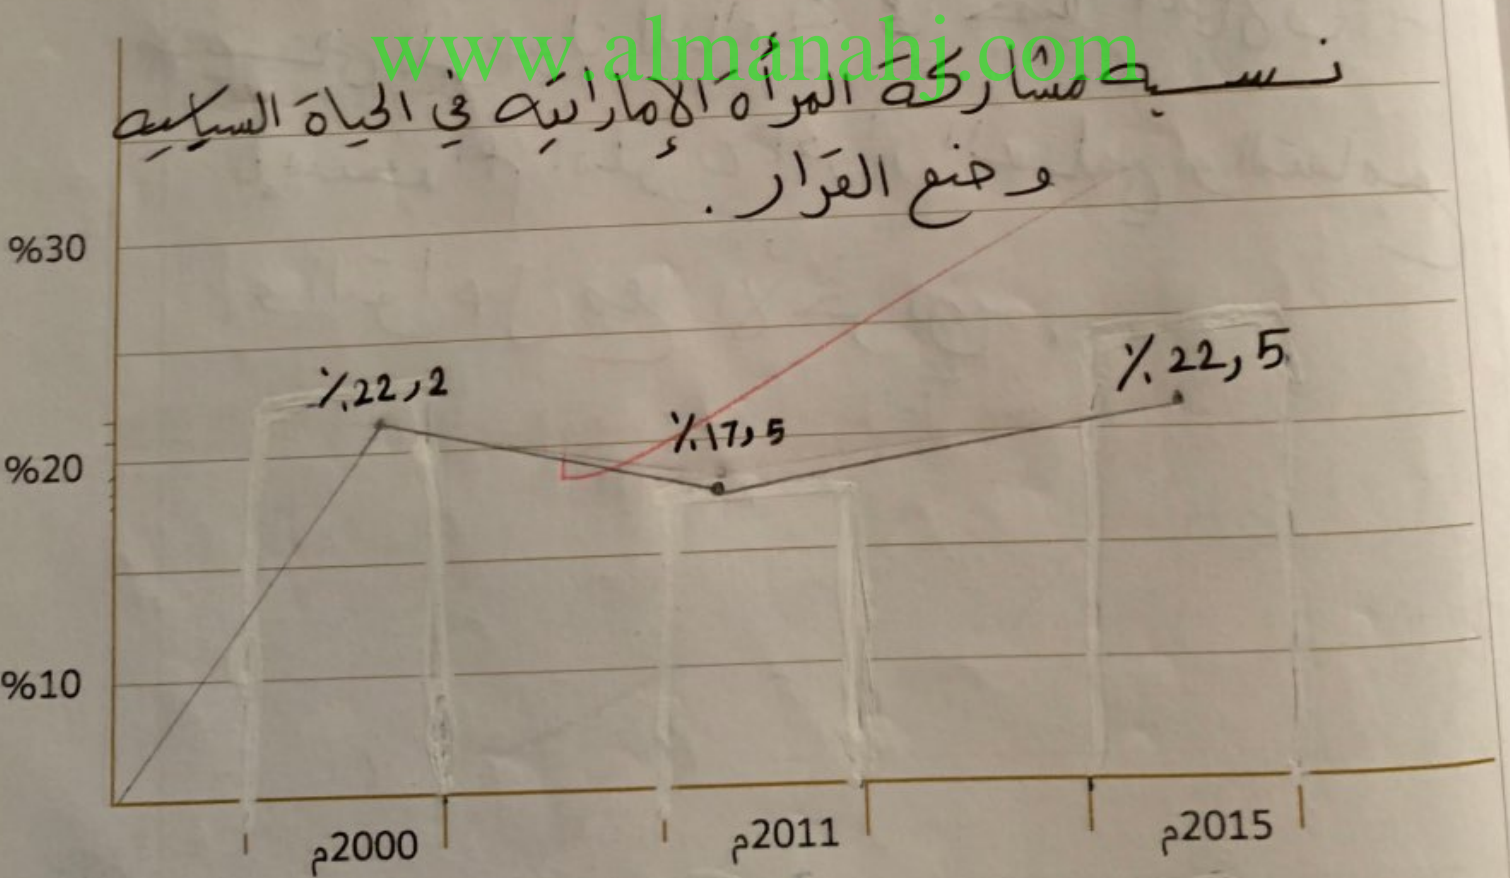 www.almanahj.com
نسبه مشاركة المرأة الإماراتيه في الحياة السياسيه
و صنع القرار .
%30
%20
%10
٪22,2
٪17,5
٪22,5
2000م
2011م
2015م